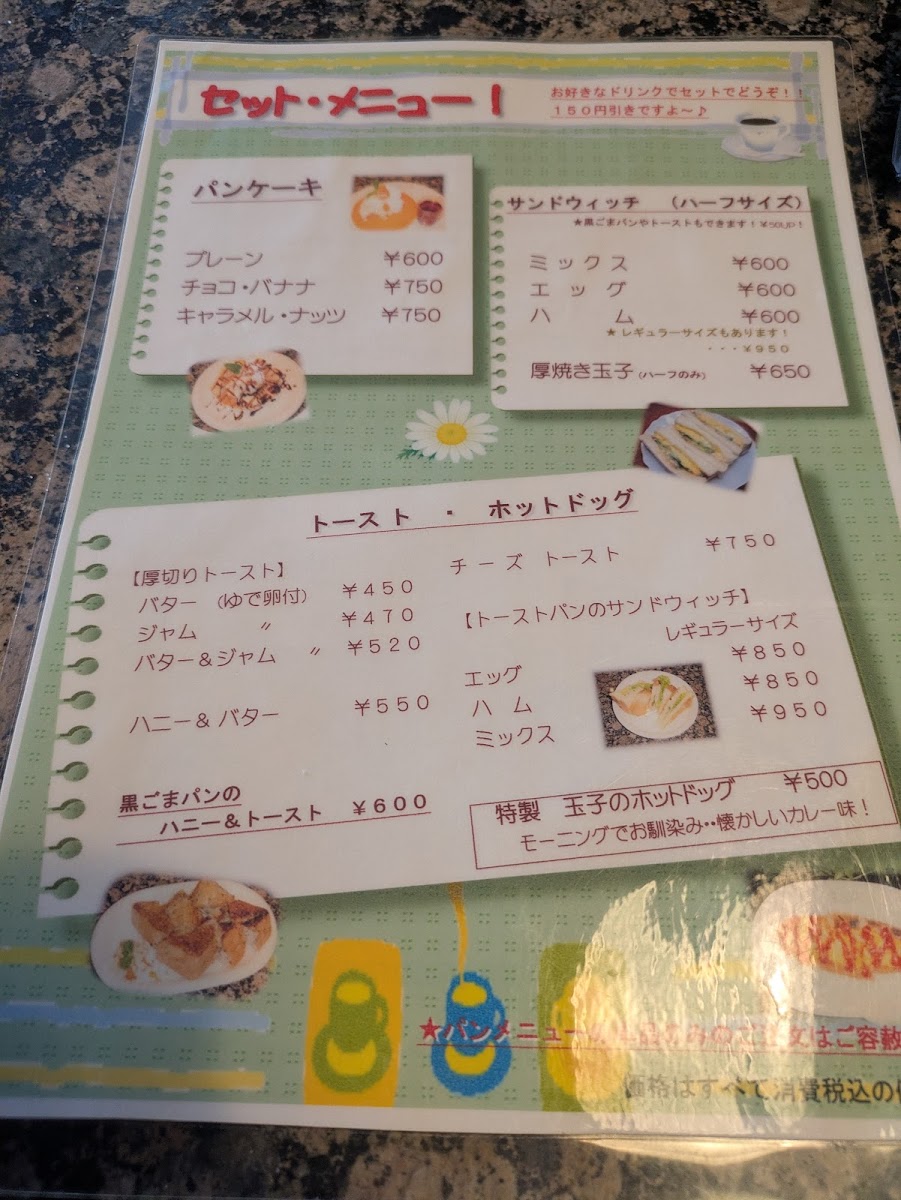 セット・メニュー 1
お好きなドリンクでセットでどうぞ！！
１５０円引きですよ～♪
パンケーキ
プレーン ￥600
チョコ・バナナ ￥750
キャラメル・ナッツ ￥750
サンドウィッチ （ハーフサイズ）
★黒ごまパンやトーストもできます！￥50UP！
ミックス ￥600
エッグ ￥600
ハム ￥600
★レギュラーサイズもあります！
・・・￥950
厚焼き玉子 (ハーフのみ) ￥650
トースト ・ ホットドッグ
【厚切りトースト】
バター （ゆで卵付） ￥450
ジャム 〃 ￥470
バター＆ジャム 〃 ￥520
ハニー＆バター ￥550
黒ごまパンの
ハニー＆トースト ￥600
チーズ トースト ￥750
【トーストパンのサンドウィッチ】
レギュラーサイズ
エッグ ￥850
ハム ￥850
ミックス ￥950
特製 玉子のホットドッグ ￥500
モーニングでお馴染み・・懐かしいカレー味！
★パンメニュー のみのご注文はご容赦
価格はすべて消費税込の